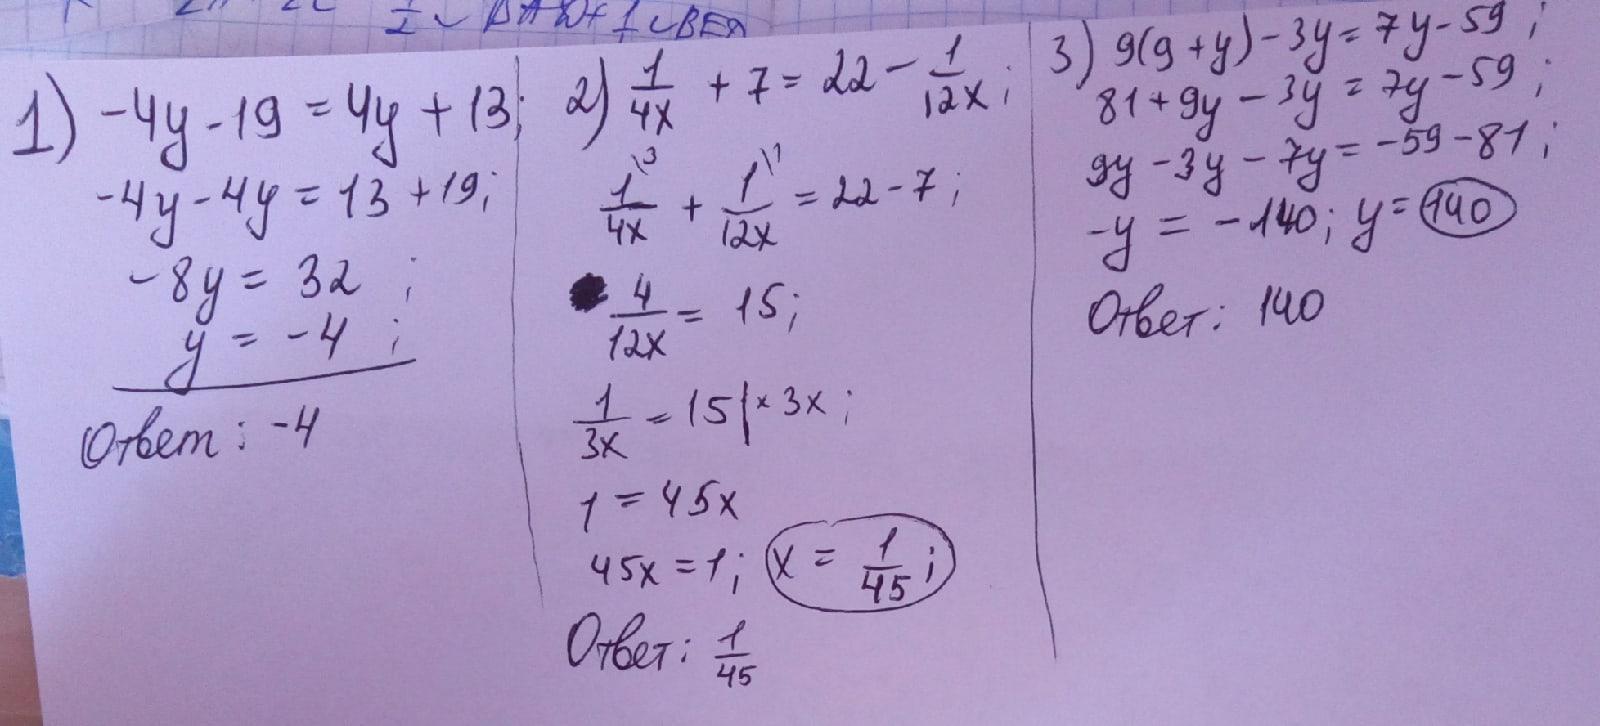 1) -4y - 19 = 4y + 13;
-4y - 4y = 13 + 19;
-8y = 32 ;
y = -4 ;
Ответ: -4
2) 1/4x + 7 = 22 - 1/12x ;
1\3/4x + 1\1/12x = 22 - 7 ;
4/12x = 15 ;
1/3x = 15 | × 3x ;
1 = 45x
45x = 1 ; x = 1/45 ;
Ответ: 1/45
3) 9(9 + y) - 3y = 7y - 59 ;
81 + 9y - 3y = 7y - 59 ;
9y - 3y - 7y = -59 - 81 ;
-y = -140 ; y = 140
Ответ: 140